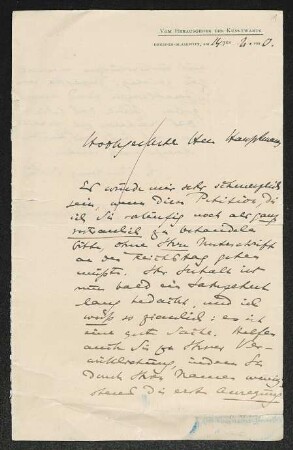 VOM HERAUSGEBER DES KUNSTWARTS
DRESDEN-BLASEWITZ, AM 14
Hochgeehrter Herr Hauptmann,
Es würde mir sehr schmerzlich
sein, wenn diese Petition, die
ich Sie vorläufig noch als ganz
vertraulich zu behandeln
bitte, ohne Ihre Unterschrift
an den Reichstag gehen
müßte. Ihr Inhalt ist
nun bald ein Jahrzehnt
lang bedacht, und ich
weiß so ziemlich: es ist
eine gute Sache. Helfen
auch Sie zu ihrer Ver-
wirklichung, indem Sie
durch Ihren Namen wenig-
stens die erste Anregung